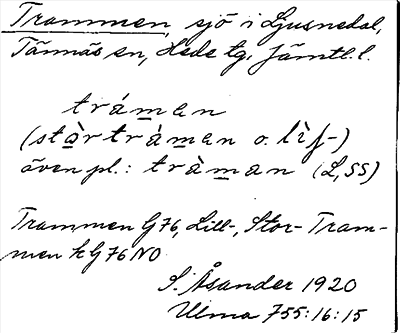 Trammen, sjö i Ljusnedal,
Tännäs sn, Hede tg, Jämtl. l.
tráman
(stòrtráman o. lìf-)
även pl.: tràman (L, SS)
Trammen G76, Lill-, Stor- Tram-
men k G76 NO
S. Åsander 1920
Ulma 755:16:15